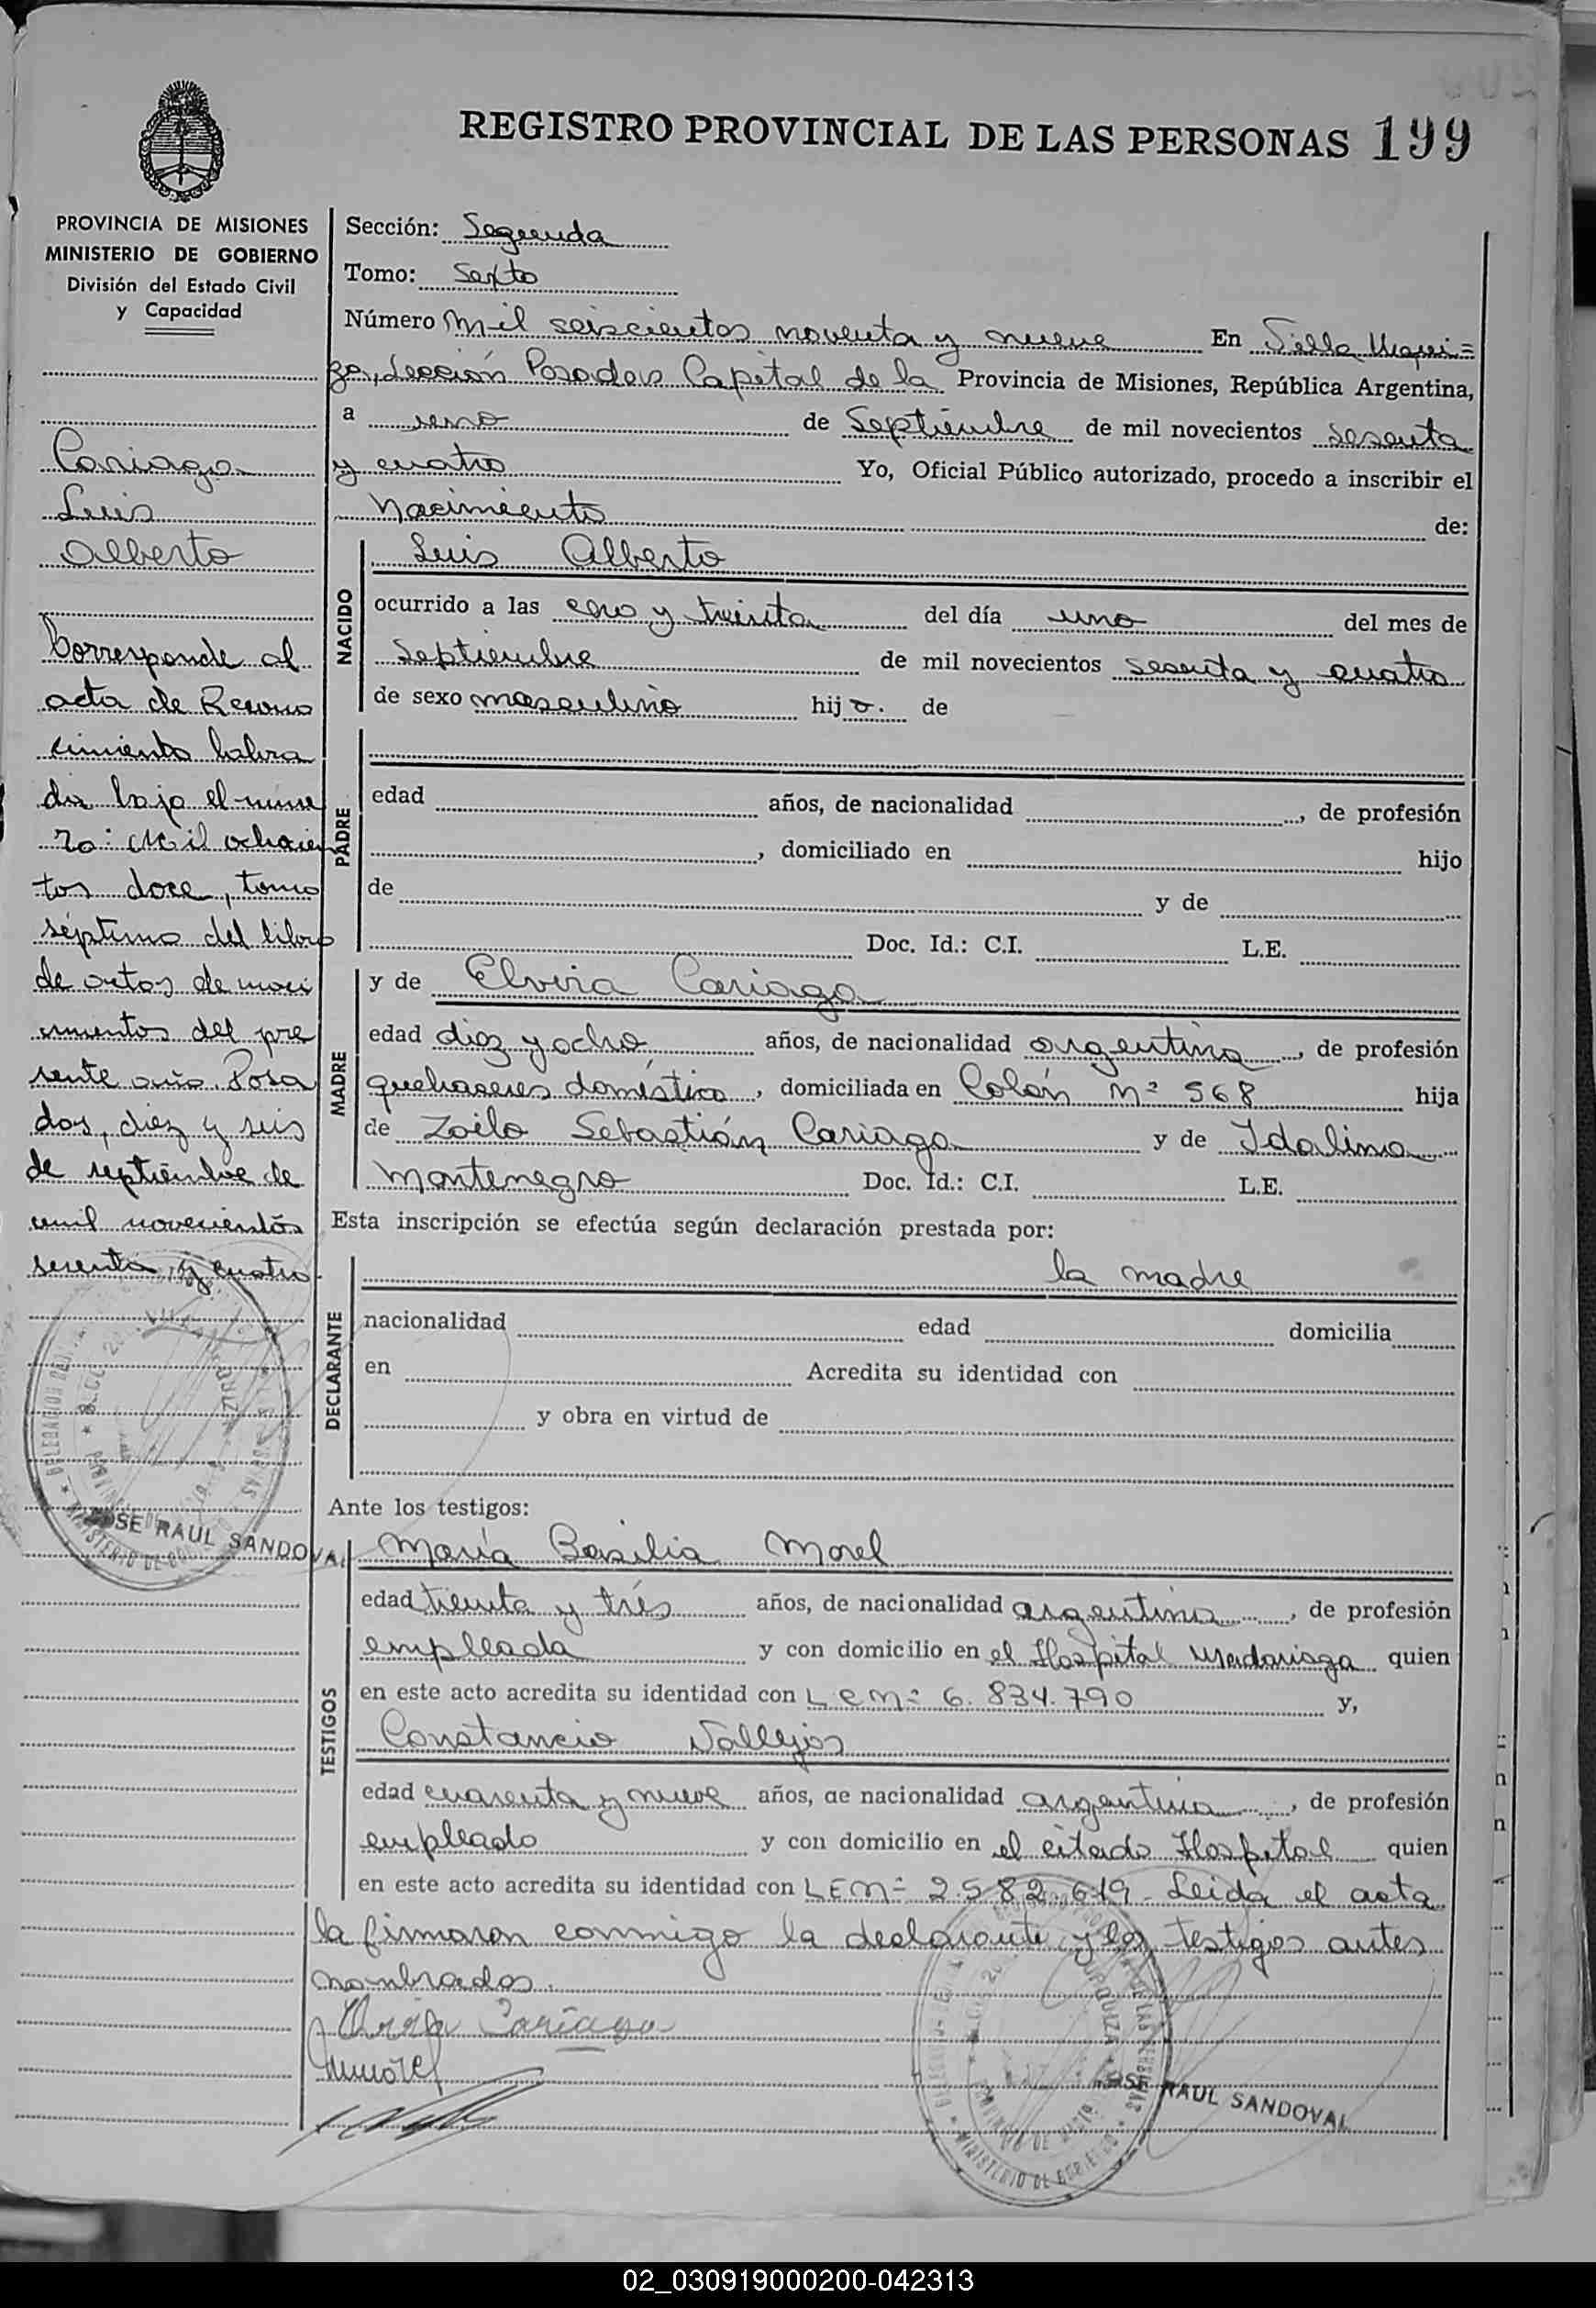 REGISTRO PROVINCIAL DE LAS PERSONAS 199
PROVINCIA DE MISIONES
MINISTERIO DE GOBIERNO
División del Estado Civil
y Capacidad
Cariaga
Luis
Alberto
Corresponde al
acta de Recono
cimiento labra
da bajo el núme
ro: Mil ochocien
tos doce, tomo
séptimo del libro
de actas de naci
mientos del pre
sente año. Posa
das, diez y seis
de septiembre de
mil novecientos
sesenta y cuatro.
JOSE RAUL SANDOVAL
Sección: Segunda
Tomo: Sexto
Número Mil seiscientos noventa y nueve En Villa Urqui=
za, Sección Posadas Capital de la Provincia de Misiones, República Argentina,
a uno de Septiembre de mil novecientos sesenta
y cuatro Yo, Oficial Público autorizado, procedo a inscribir el
Nacimiento de:
NACIDO
Luis Alberto
ocurrido a las cero y treinta del día uno del mes de
Septiembre de mil novecientos sesenta y cuatro
de sexo masculino hijo. de
PADRE
edad años, de nacionalidad , de profesión
, domiciliado en hijo
de y de
Doc. Id.: C.I. L.E.
MADRE
y de Elvira Cariaga
edad diez y ocho años, de nacionalidad argentina, de profesión
quehaseres doméstico, domiciliada en Colón Nº 568 hija
de Zoilo Sebastián Cariaga y de Idalina
Montenegro Doc. Id.: C.I. L.E.
Esta inscripción se efectúa según declaración prestada por:
DECLARANTE
la madre
nacionalidad edad domicilia
en Acredita su identidad con
y obra en virtud de
Ante los testigos:
TESTIGOS
María Basilia Morel
edad treinta y trés años, de nacionalidad argentina, de profesión
empleada y con domicilio en el Hospital Madariaga quien
en este acto acredita su identidad con L e Nº 6.834.790 y,
Constancio Vallejos
edad cuarenta y nueve años, de nacionalidad argentina, de profesión
empleado y con domicilio en el citado Hospital quien
en este acto acredita su identidad con L E Nº 2.582.619. Leida el acta
la firmaron conmigo la declarante y los testigos antes
nombrados.
Elvira Cariaga
JOSE RAUL SANDOVAL
02_030919000200-042313